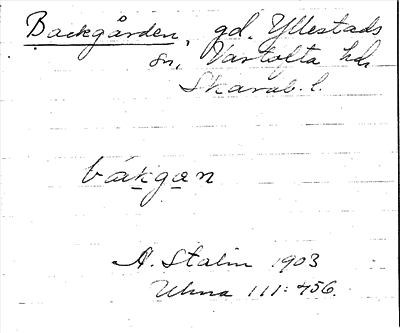 Backgården, gd. Yllestads
sn, Vartofta hd
Skarab. l.
båkgạn
A. Stalin 1903
Ulma 111: 456.